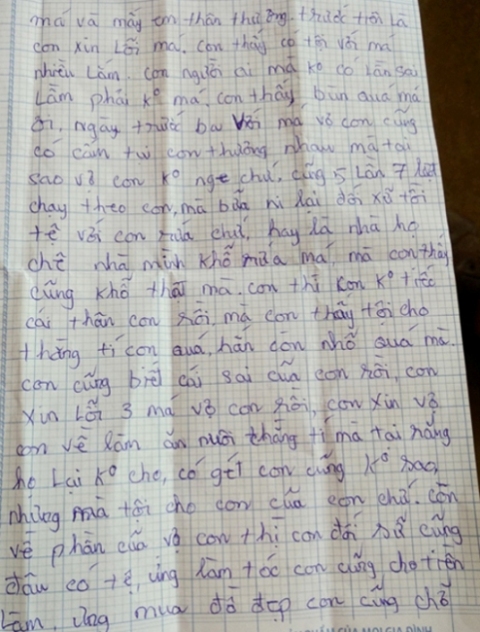 má và mấy em thân thương. trước tiên là
con xin lỗi má. con thấy có tội với má
nhiều lắm. con người ai mà ko có lần sai
lầm phải ko má. con thấy bùn quá má
ơi, ngày trước ba với má vợ con cũng
có cấm tụi con thương nhau mà tại
sao vợ con ko nge chứ, cũng 5 lần 7 lượt
chạy theo con, mà bữa ni lại đối xử tồi
tệ với con rứa chứ, hay là nhà họ
chê nhà mình khổ rứa má, mà con thấy
cũng khổ thật mà. con thì con ko tiếc
cái thân con rồi, mà con thấy tội cho
thằng tí con quá, hắn còn nhỏ quá mà.
con cũng biết cái sai của con rồi, con
xin lỗi 3 má vợ con rồi, con xin vợ
con về làm ăn nuôi thằng tí mà tại răng
họ lại ko cho, có gét con cũng ko sao,
nhưng mà tội cho con của con chứ. còn
về phần của vợ con thì con đối sử cũng
đâu có tệ, ưng làm tóc con cũng cho tiền
làm, ưng mua đồ đẹp con cũng chở